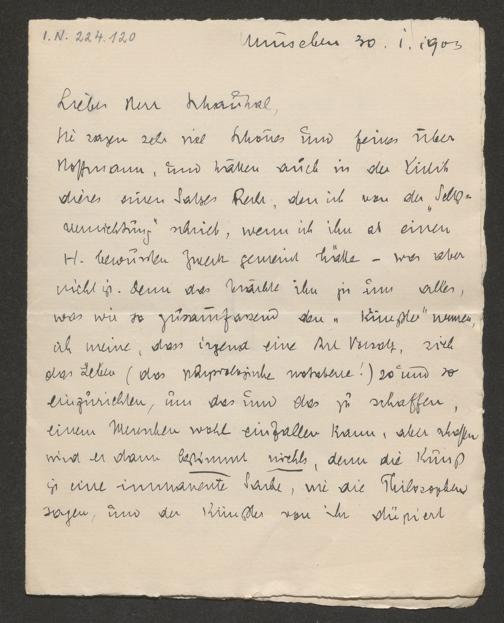 I.N. 224.120
München 30. I. 1903
Lieber Herr Schaukal,
Sie sagen sehr viel Schönes und feines über
Hoffmann, und hätten auch in der Kritik
dieses einen Satzes Recht, den ich von der „Selbst-
vernichtung" schrieb, wenn ich ihn als einen
H. bewussten Zweck gemeint hätte – was aber
nicht ist. Denn das brächte ihn ja um alles,
was wir so zusammfassend den „Künstler" nennen,
ich meine, dass irgend eine Art Vorsatz, sich
das Leben (das physiologische notabene!) so und so
einzurichten, um das und das zu schaffen,
einem Menschen wohl einfallen kann, aber schaffen
wird er dann bestimmt nichts, denn die Kunst
ist eine immanente Sache, wie die Philosophen
sagen, und der Künstler von ihr düpiert